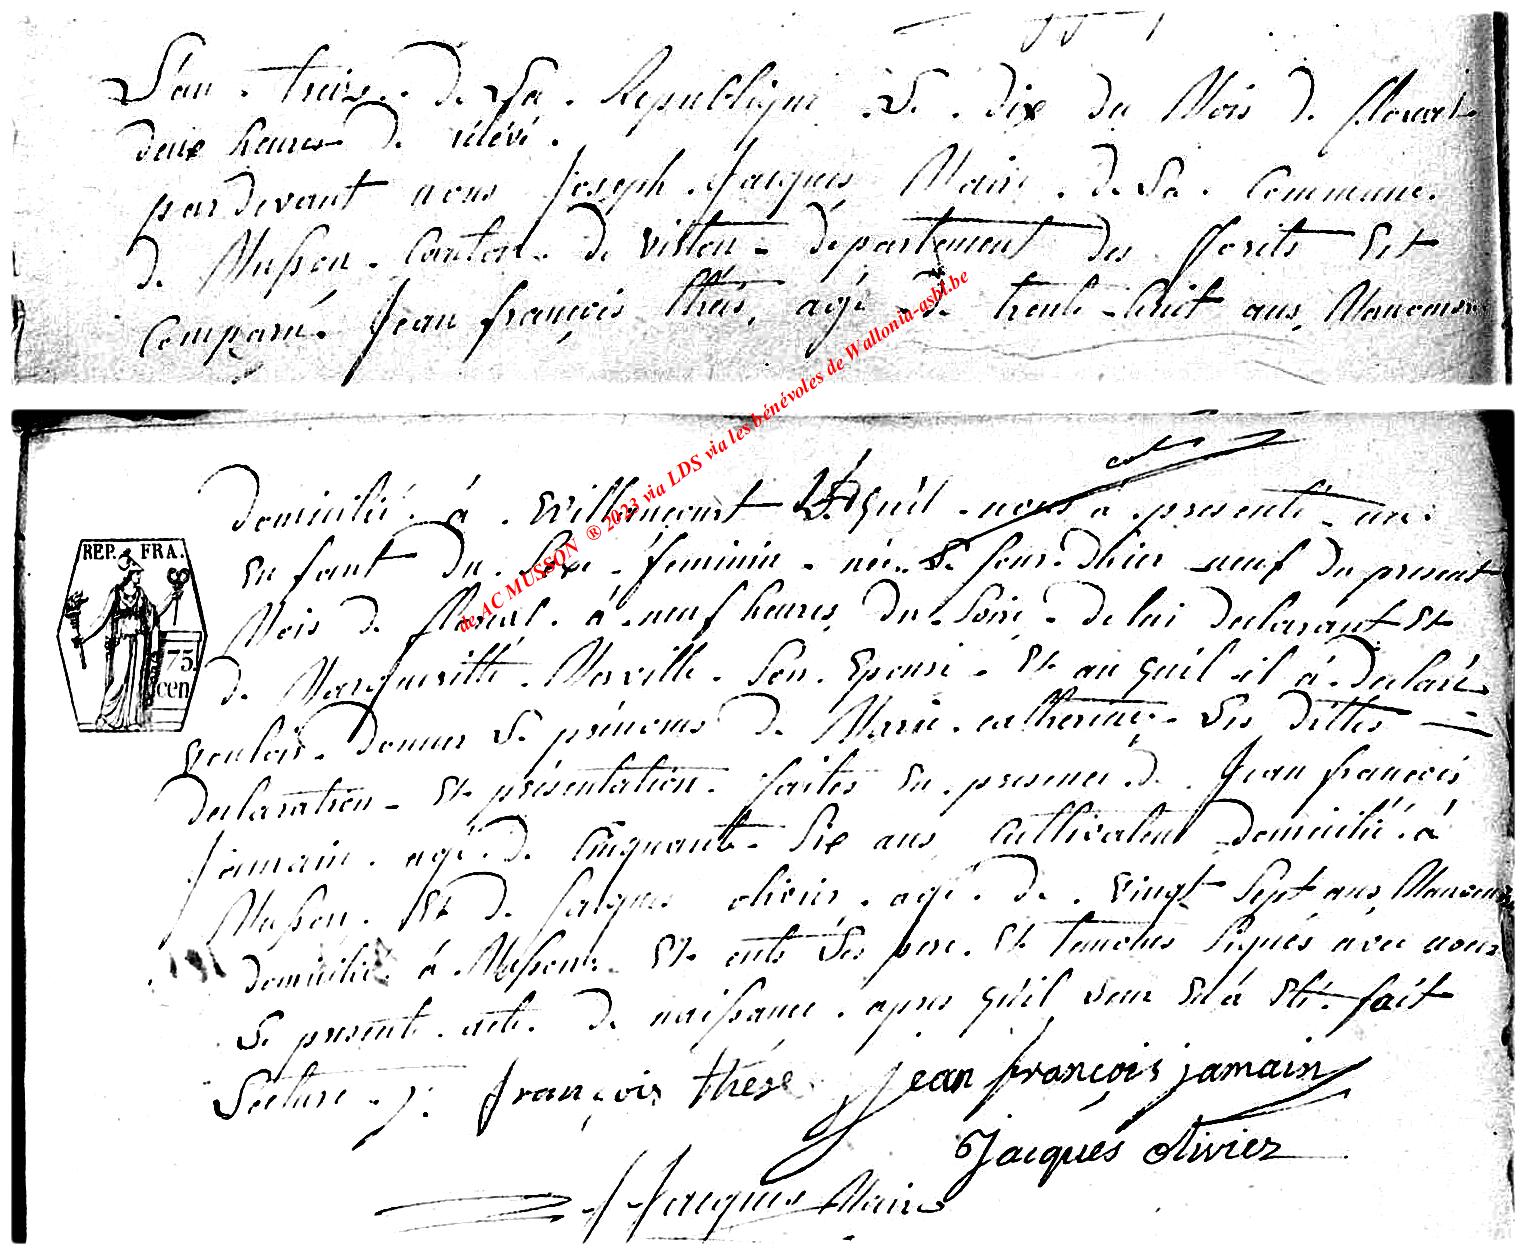 L'an treize de La Republique Le dix du Mois de floreal
deux heures de rélévé.
pardevant nous Joseph Jacques Maire de La Commune
de Musson Canton de virton département des forets Est
Comparu Jean françois thés, agé de trente huit ans, Manoeuvre
domicilié à Willancourt Lequil nous à presenté un
Enfant du Sexe féminin née Le Jour dhier neuf du present
Mois de floreal à neuf heures du Soire de lui declarant Et
de Margueritte Morville Son Epouse Et au quil il à declaré
vouloir donner Le prénoms de Marie catherine Les dittes
declaration Et présentation faites En presence de Jean françois
Jamain agé de Cinquante Six ans Cultivateur domicilié à
Musson Et de Jacques olivier agé de vingt Sept ans, Manoeuvre
domicilié à Musson Et onts Les pere Et temoins Signés avec nous
Le present acte de naissance apres qu'il leur En à Eté fait
Lecture
françois thése jean françois jamain
Jacques oliviez
J Jacques Maire
REP. FRA.
75
cen
de AC MUSSON ® 2023 via LDS via les bénévoles de Wallonia-asbl.be